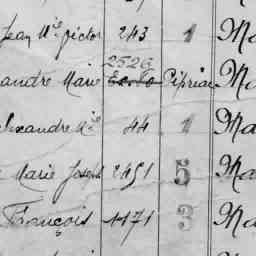 Jean Mie Victor 243 1 Ma
2526
andre Marie Ciprian Ma
lexandre Mie 44 1 Ma
Marie Joseph 2451 5 Ma
François 1171 3 Ma